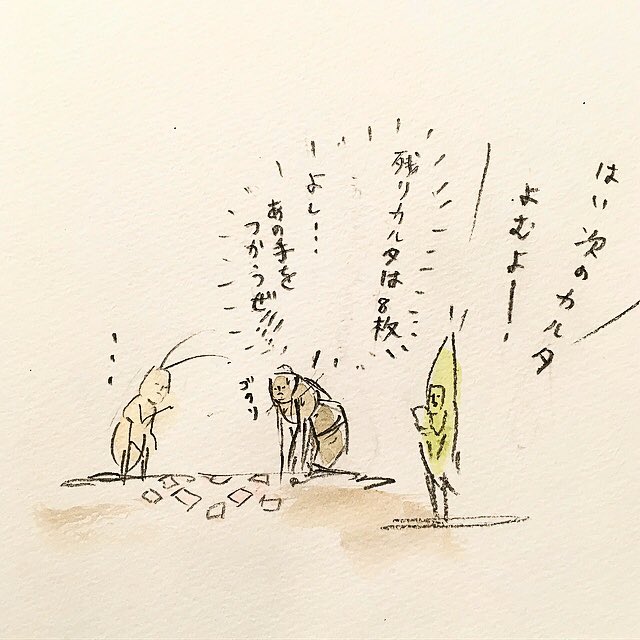 はい次のカルタ
よむよー!
残りカルタは8枚…
よし…
あの手を
つかうぜ!!!
ゴクリ